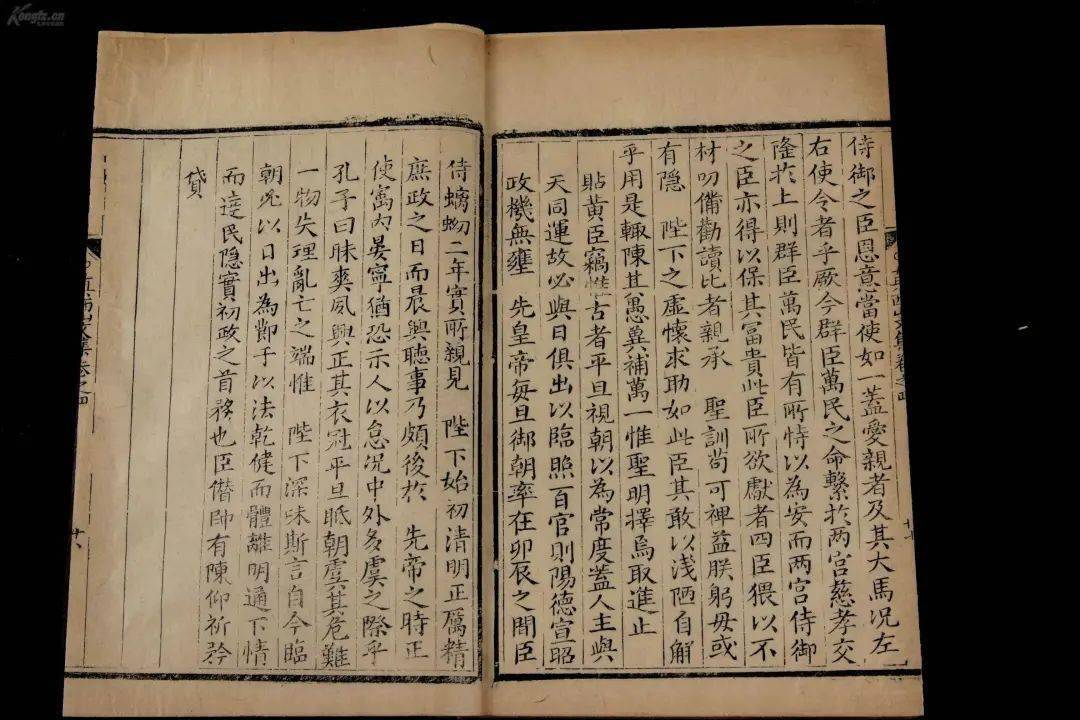 侍御之臣恩意當使如一蓋愛親者及其犬馬况左
右使令者乎厥今群臣萬民之命繫於两宫慈孝交
隆於上則群臣萬民皆有所恃以為安而两宫侍御
之臣亦得以保其冨貴此臣所欲獻者四臣猥以不
材叨備勸讀比者親承 聖訓苟可裨益朕躬毋或
有隠 陛下之虚懐求助如此臣其敢以淺陋自解
乎用是輙陳其愚兾補萬一惟聖明擇焉取進止
貼黄臣竊惟古者平旦視朝以為常度蓋人主與
天同運故必與日俱出以臨照百官則陽德宣昭
政機無壅 先皇帝毎旦御朝率在卯辰之間臣
侍螭坳二年實所親見 陛下始初清明正厲精
庶政之日而晨興聽事乃頗後於 先帝之時正
使㝢内晏寧猶恐示人以怠况中外多虞之際乎
孔子曰昧爽夙興正其衣冠平旦眡朝虞其危難
一物失理亂亡之端惟 陛下深味斯言自今臨
朝必以日出為節于以法乾健而體離明通下情
而逹民隠實初政之首務也臣僭帥有陳仰祈矜
貸
真西山文集卷之四
十六
Kongfz.cn